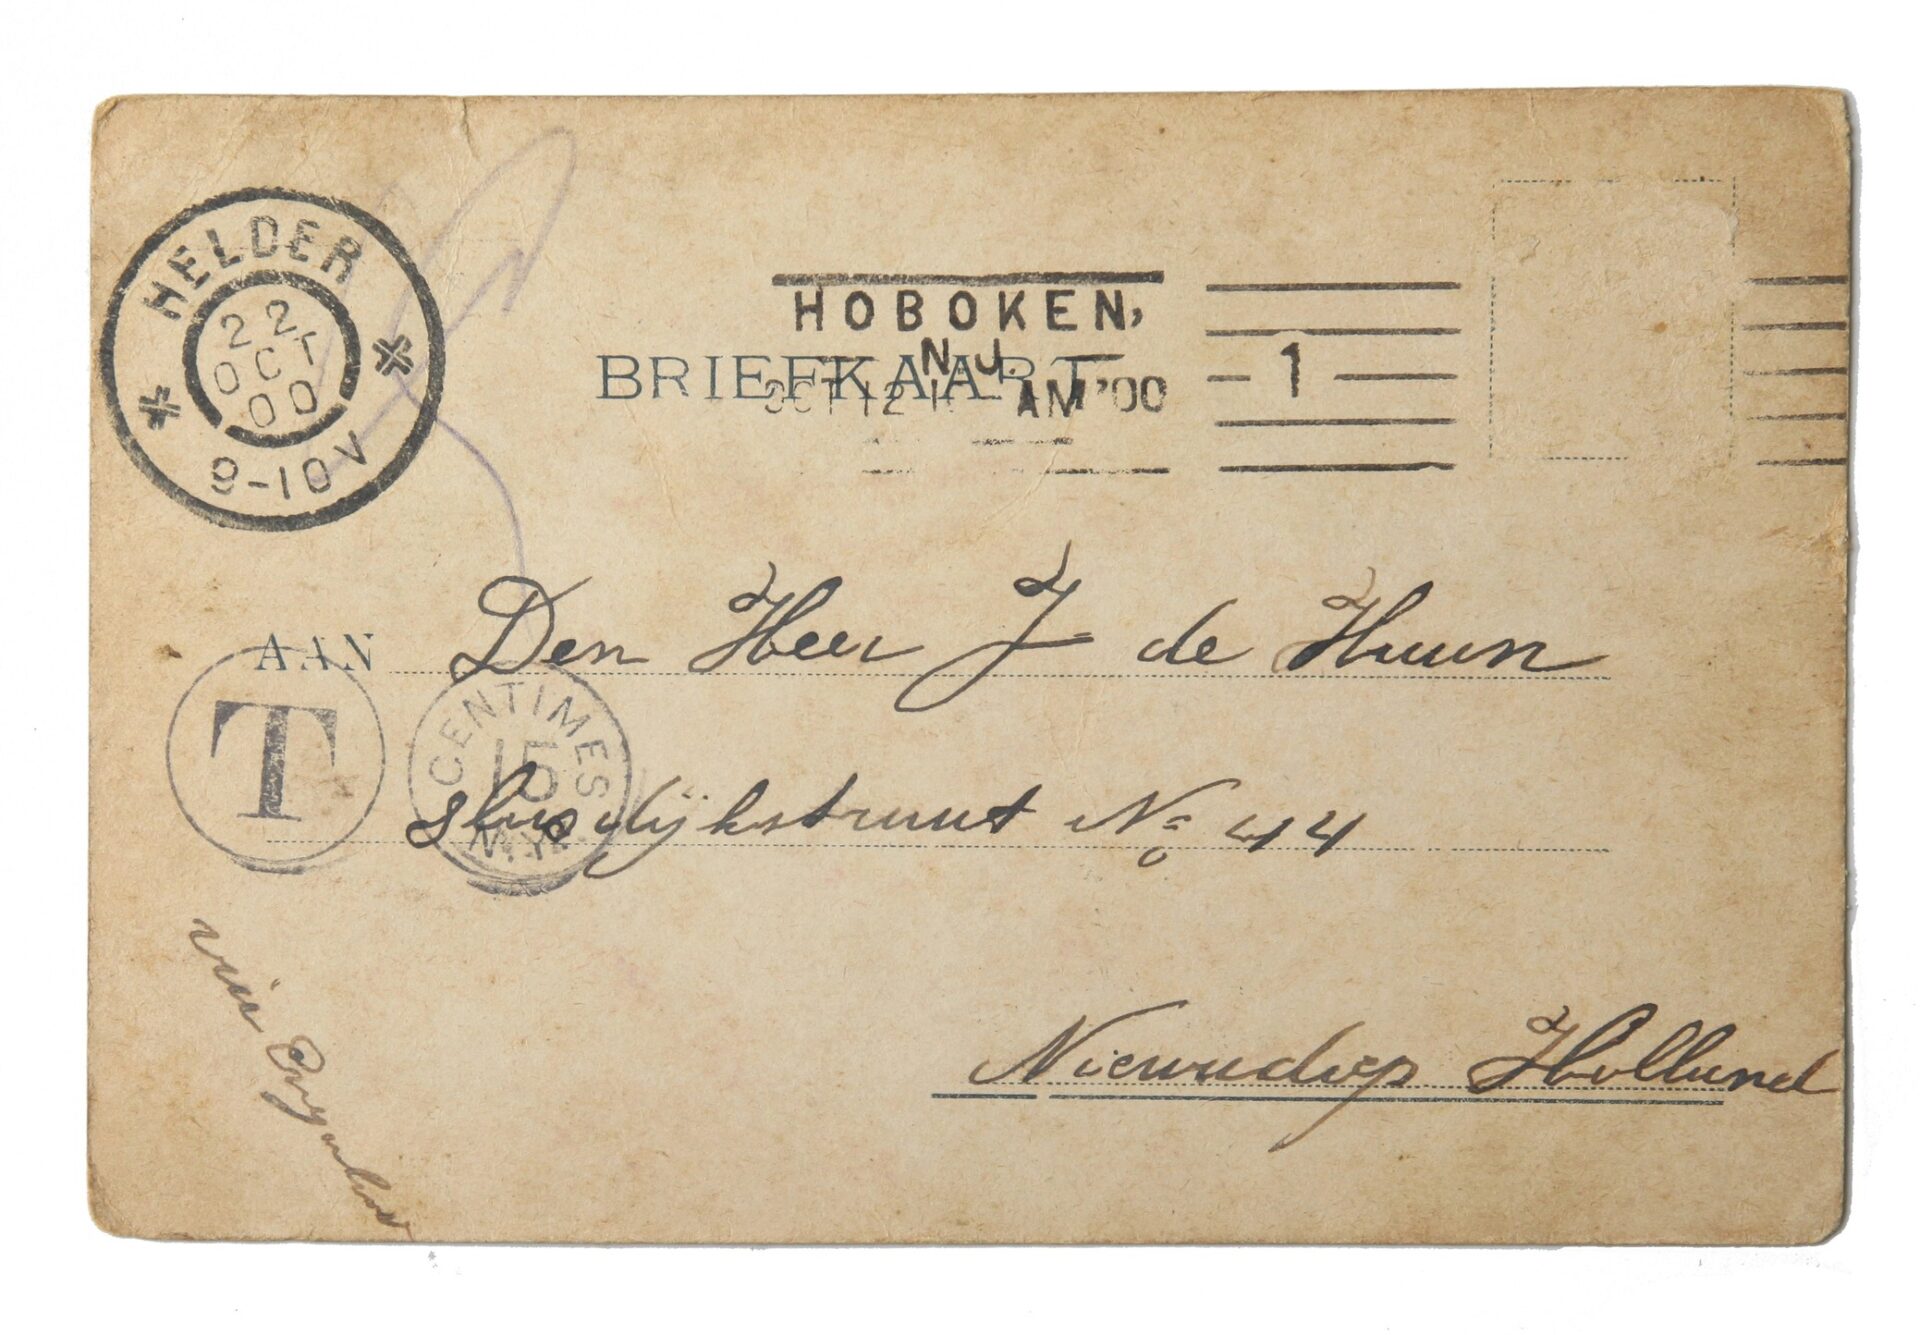 HELDER
22
OCT
00
9-10V
HOBOKEN,
N.J.
OCT 12 AM '00
1
BRIEFKAART
AAN Den Heer J de Haan
T
CENTIMES
15
N.Y.
Sluisdijkstraat No 44
Nieuwediep Holland
via